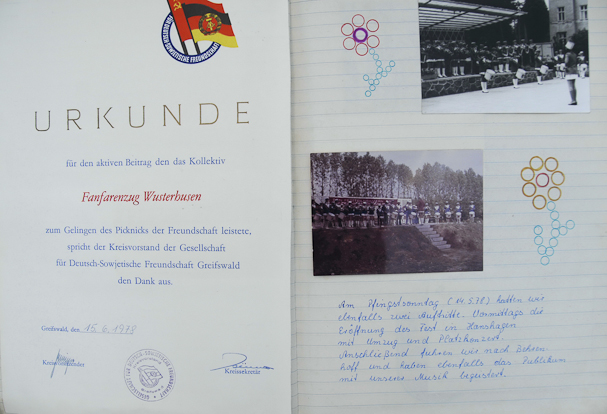 GESELLSCHAFT FÜR DEUTSCH-SOWJETISCHE FREUNDSCHAFT
URKUNDE
für den aktiven Beitrag den das Kollektiv
Fanfarenzug Wusterhusen
zum Gelingen des Picknicks der Freundschaft leistete,
spricht der Kreisvorstand der Gesellschaft
für Deutsch-Sowjetische Freundschaft Greifswald
den Dank aus.
Greifswald, den 15.6.1978
Kreisvorsitzender
Kreissekretär
Am Pfingstsonntag (14.5.78) hatten wir
ebenfalls zwei Auftritte. Vormittags die
Eröffnung des Fest in Hanshagen
mit Umzug und Platzkonzert.
Anschließend fuhren wir nach Behren
hoff und haben ebenfalls das Publikum
mit unserer Musik begeistert.